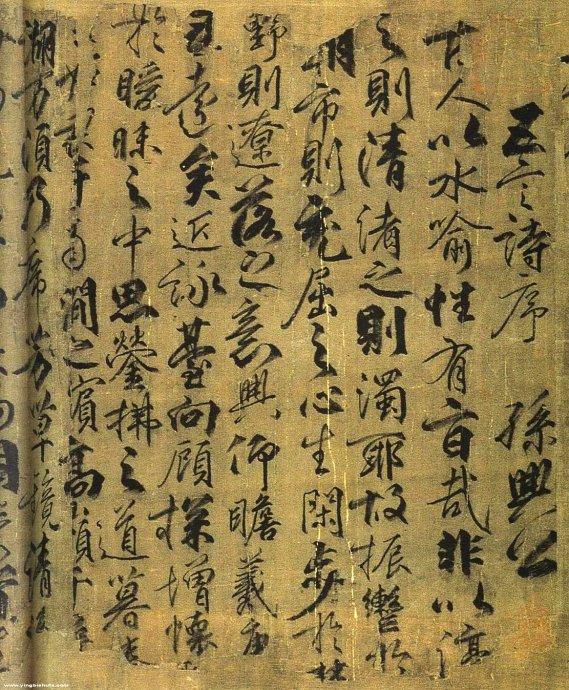 五言詩序 孫興公
古人以水喻性有旨哉非以渟
之則清淆之則濁耶故振轡於
朝市則充屈之心生閑步於林
野則遼落之意興仰瞻羲唐
遠矣近詠臺閣顧探增懷
於曖昧之中思瑩拂之道暮春
于南澗之賓高嶺千尋
湖萬頃乃席芳草鏡清流
www.yingbishufa.com